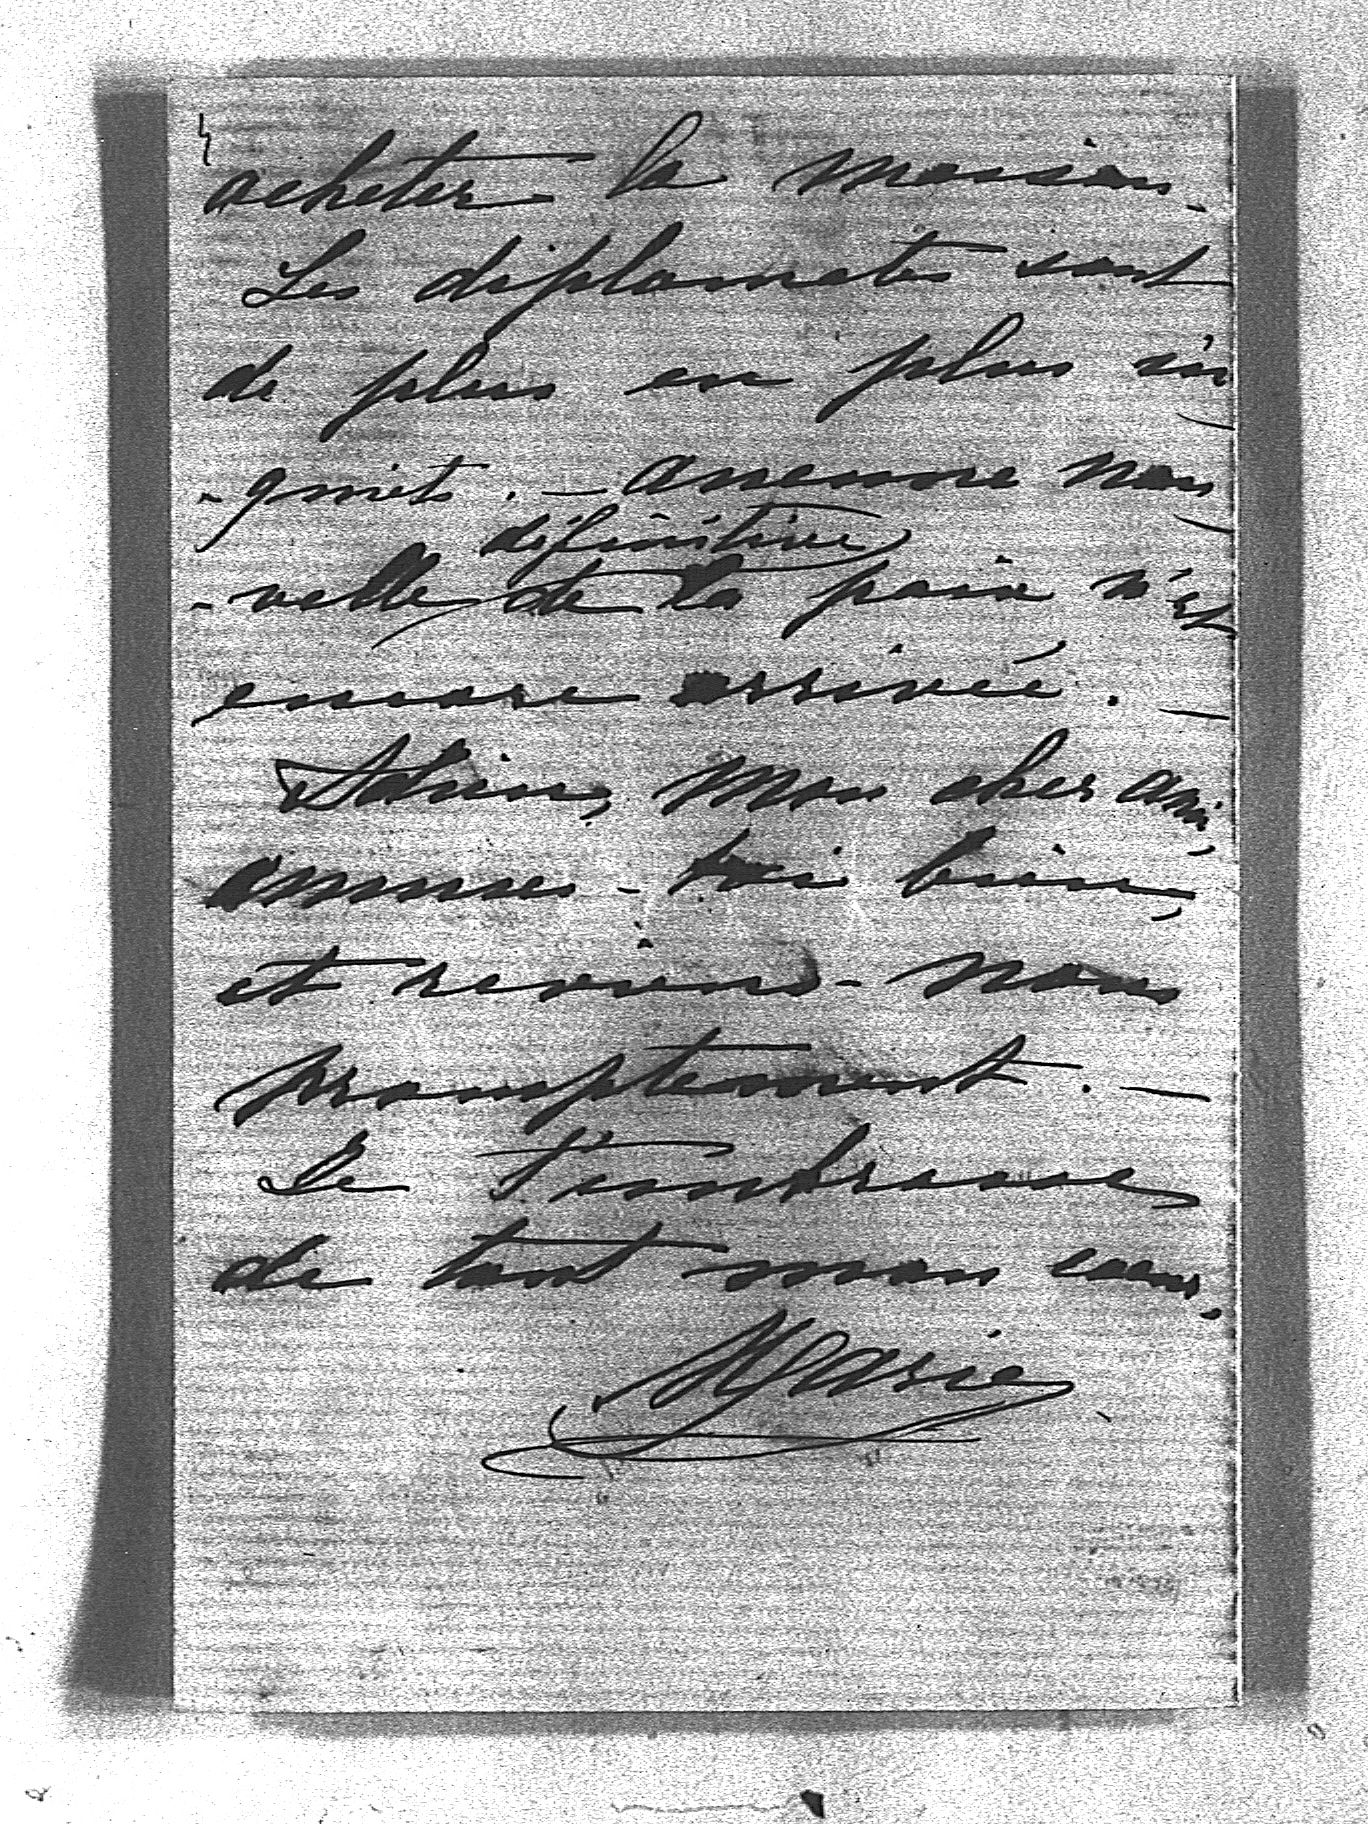 4
acheter la maison.
Les diplomates sont
de plus en plus in
-quiets. — aucune nou
définitive
-velle de la paix n'est
encore arrivée. —
Adieu, mon cher ami,
amuses-toi bien,
et reviens-nous
promptement. —
Je t'embrasse
de tout mon cœur.
Marie